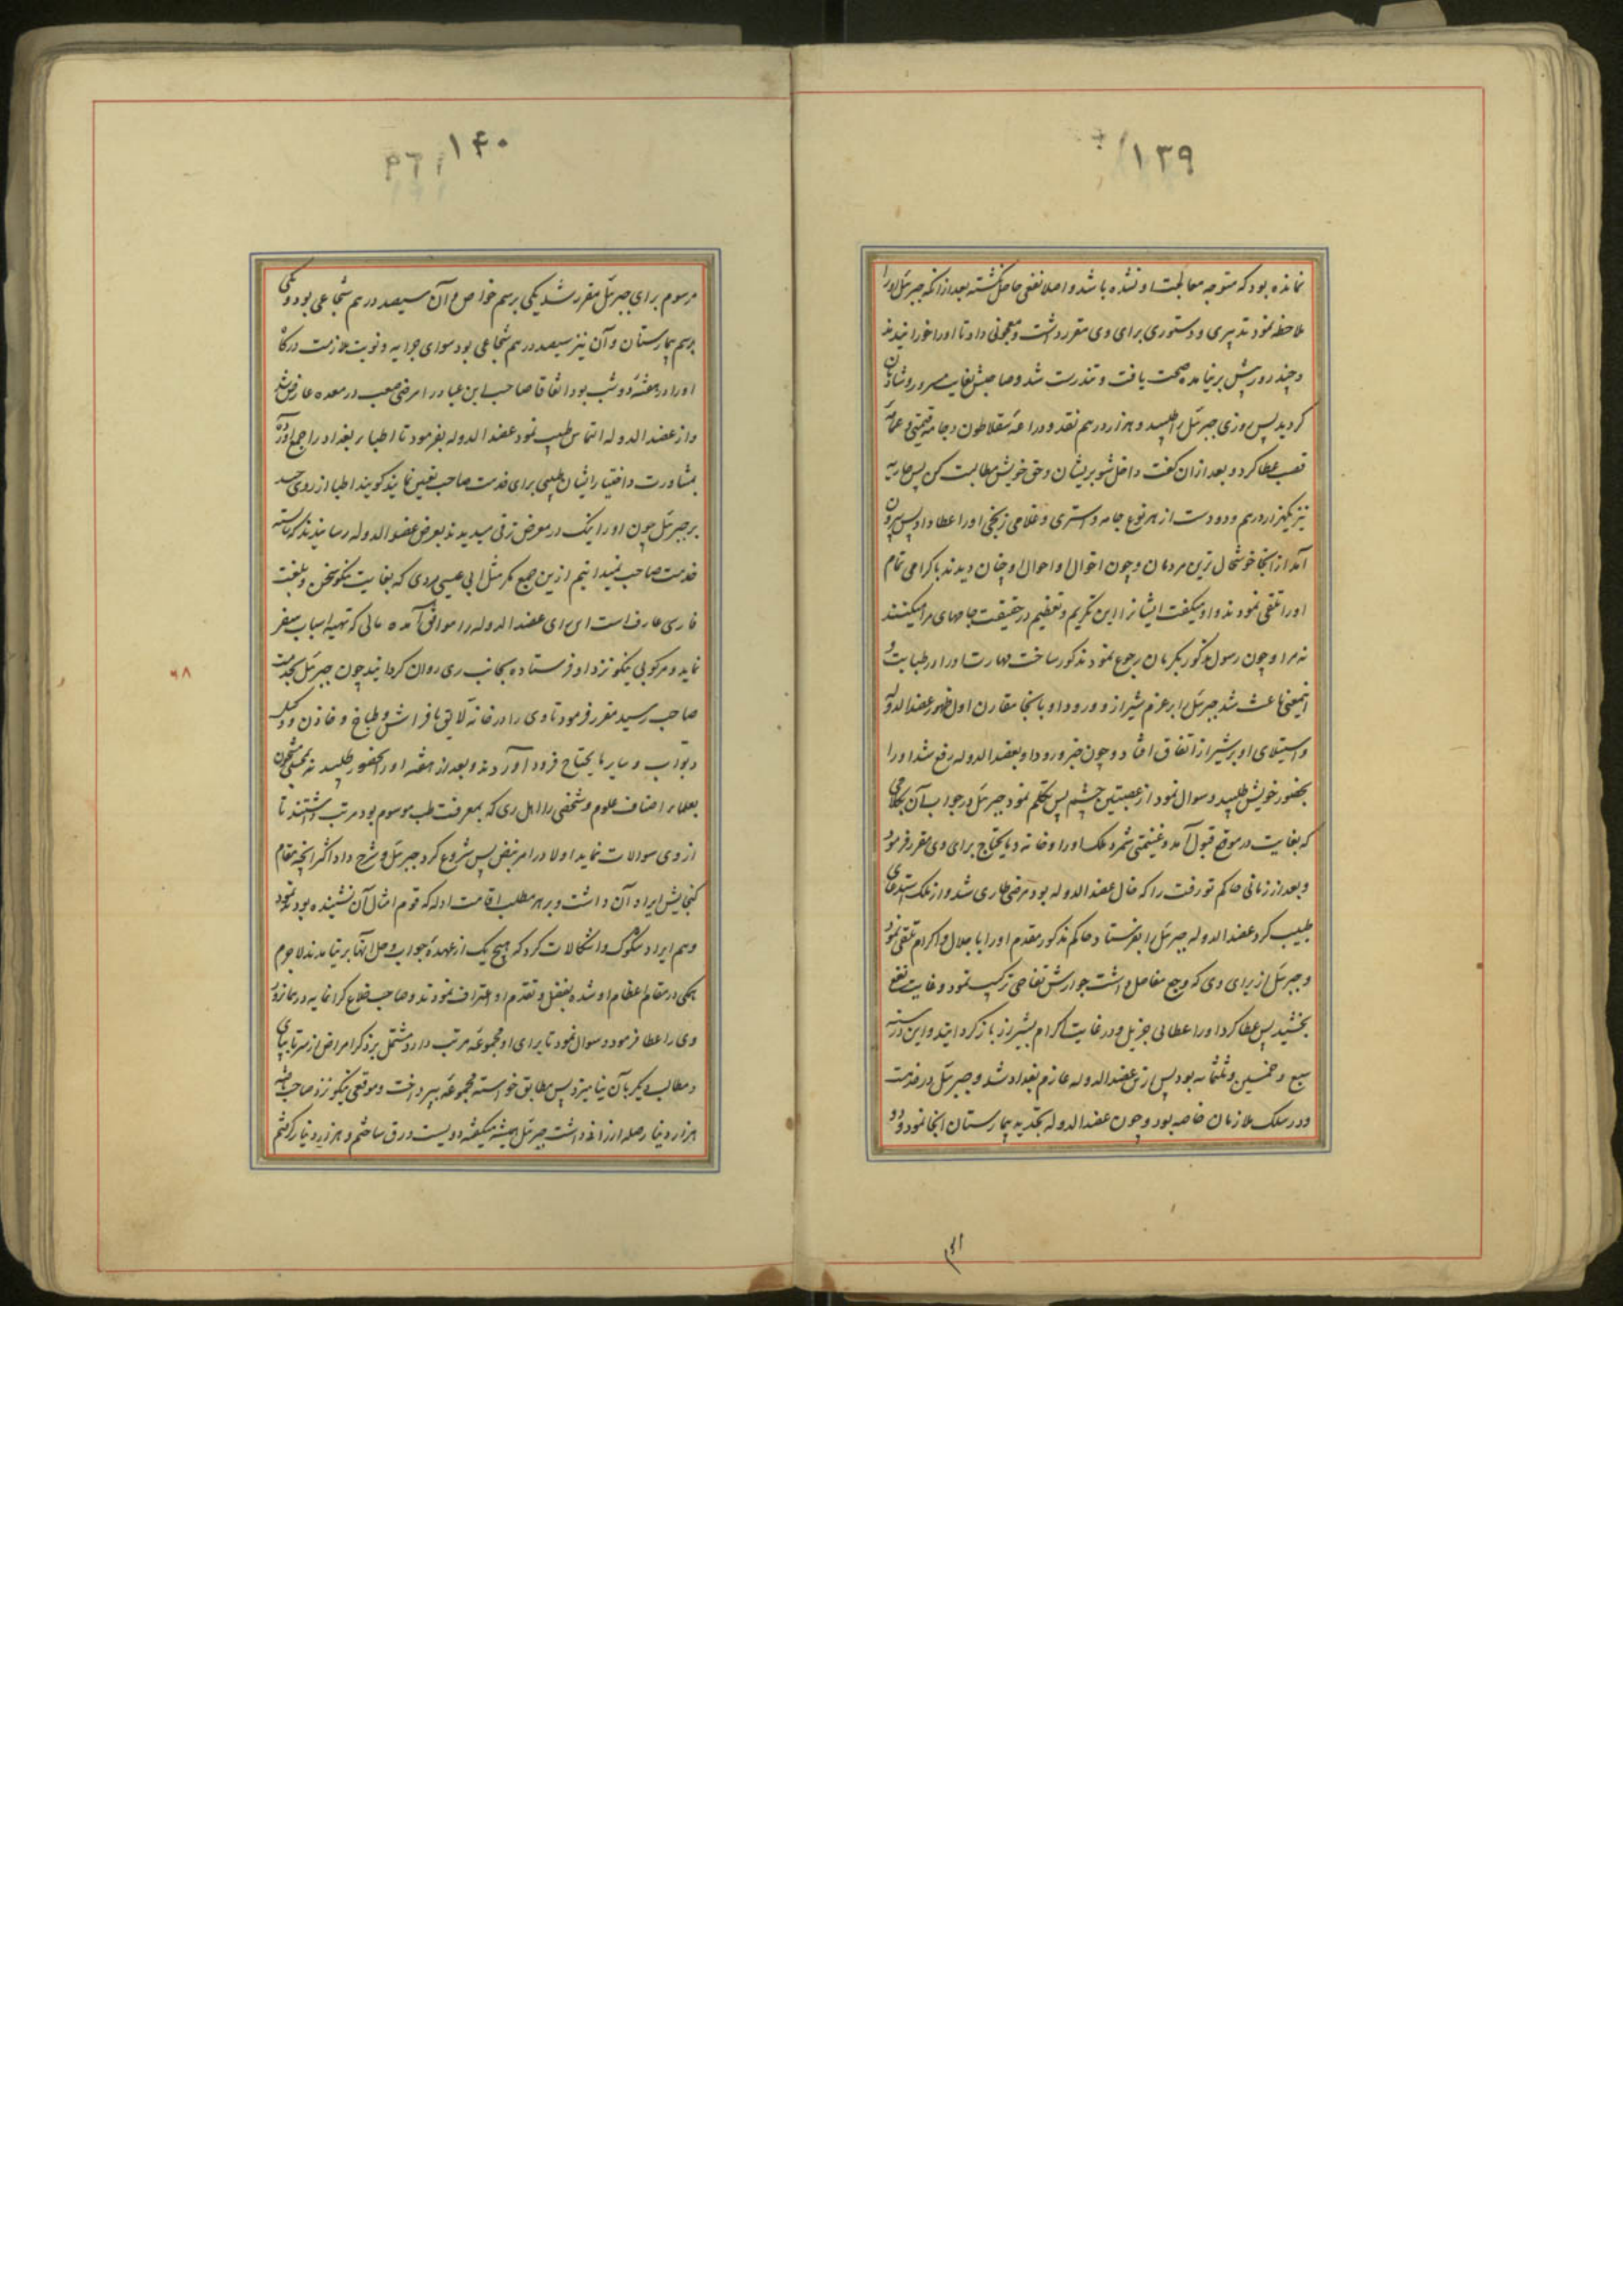 ۱۳۹
نمانده بود که متوجه معالجت او نشده باشد و اصلا نفعی حاصل نکشته بعد از انکه جبرئل او را
ملاحظه نمود تدبیری و دستوری برای وی مقرر داشت و معجونی داد تا او را خورانیدند
و چند روزش بر نیامده صحت یافت و تندرست شد و صاحبش بغایت مسرور و شادمان
کردید پس روزی جبرئل را طلبید و هزار درهم نقد و دراعه سقلاطون و جامه قیمتی و عمامه
قصب عطا کرد و بعد از ان کفت داخل شو بر ایشان و حق خویش مطالبت کن پس جاریه
نیز یکهزار درهم و دو دست از هر نوع جامه و استری و غلامی زنکی او را عطا داد پس بیرون
آمد از انجا خوشحال ترین مردمان و چون اخوال او احوال او چنان دیدند باکرامی تمام
او را تلقی نمودند و او میکفت ایشانرا این تکریم و تعظیم در حقیقت جامهای مرا میکنند
نه مرا و چون رسول مذکور بکرمان رجوع نمود مذکور ساخت مهارت او را در طبابت و
اینمعنی باعث شد جبرئل را بر عزم شیراز و ورود او بانجا مقارن اول ظهور عضد الدوله
و استیلای او بر شیراز اتفاق افتاد و چون خبر ورود او بعضد الدوله رفع شد او را
بحضور خویش طلبید و سوال نمود از عصبتین چشم پس تکلم نمود جبرئل در جواب آن بکلامی
که بغایت در موقع قبول آمد و غنیمتی شمرد ملک او را و خانه و مایحتاج برای وی مقرر فرمود
و بعد از زمانی حاکم تورفت را که خال عضد الدوله بود مرضی طاری شد و از ملک استدعای
طبیب کرد عضد الدوله جبرئل را بفرستاد حاکم مذکور مقدم او را باجلال و اکرام تلقی نمود
و جبرئل از برای وی که وجع مفاصل داشت جوارش تفاحی ترکیب نمود و غایت نفع
بخشید پس عطا کرد او را عطائی جزیل و در غایت اکرام بشیراز باز کردانید و این در سنه
سبع و خمسین و ثلثمائه بود پس ازین عضد الدوله عازم بغداد شد و جبرئل در خدمت
و در سلک ملازمان خاصه بود و چون عضد الدوله تجدید بیمارستان انجا نمود دو
۱۴۰
مرسوم برای جبرئل مقرر شد یکی برسم خواص و آن سیصد درهم شجاعی بود و یکی
برسم بیمارستان و آن نیز سیصد درهم شجاعی بود سوای جرایه و نوبت ملازمت درکاه
او را در هفته دو شب بود اتفاقا صاحب ابن عباد را مرضی صعب در معده عارض شد
و از عضد الدوله التماس طبیب نمود عضد الدوله بفرمود تا اطباء بغداد را جمع آورده
بمشاورت و اختیار ایشان طبیبی برای خدمت صاحب تعیین نمایند کویند اطبا از روی حسد
بر جبرئل چون او را نیک در معرض ترقی میدیدند بعرض عضد الدوله رسانیدند که شایسته
خدمت صاحب نمیدانیم ازین جمع مکر مثل ابی عیسی مردی که بغایت نیکو سخن و بلغت
فارسی عارف است این رای عضد الدوله را موافق آمده مالی که تهیه اسباب سفر
نماید و مرکوبی نیکو نزد او فرستاده بجانب ری روان کردانید چون جبرئل بخدمت
صاحب رسید مقرر فرمود تا وی را در خانه لایق با فراش و طباخ و خازن و وکیل
و بواب و سایر مایحتاج فرود آوردند و بعد از هفته او را بحضور طلبید نه بمجلس مشحون
بعلماء اصناف علوم و شخصی را از اهل ری که بمعرفت طب موسوم بود مرتب داشتند تا
از وی سوالات نماید اولا در امر نبض پس شروع کرد جبرئل و شرح داد اکثر انچه مقام
کنجایش ایراد آن داشت و بر هر مطلب اقامت ادله که قوم امثال آن نشنیده بودند نمود
و هم ایراد شکوک و اشکالات کرد که هیچ یک از عهده جواب و حل انها بر نیامدند لاجرم
همکی در مقام اعظام او شده بفضل و تقدم او اعتراف نمودند و صاحب خلاع کرانمایه در همانروز
وی را عطا فرمود و سوال نمود تا برای او مجموعه مرتب دارد مشتمل بر ذکر امراض از سر تا بپای
و مطالب دیکر بآن نیامیزد پس مطابق خواسته مجموعه بپرداخت و موقعی نیکو نزد صاحب
هزار دینار صله ارزانی داشت جبرئل همیشه میکفته دویست ورق ساختم و هزار دینار کرفتم
۶۸